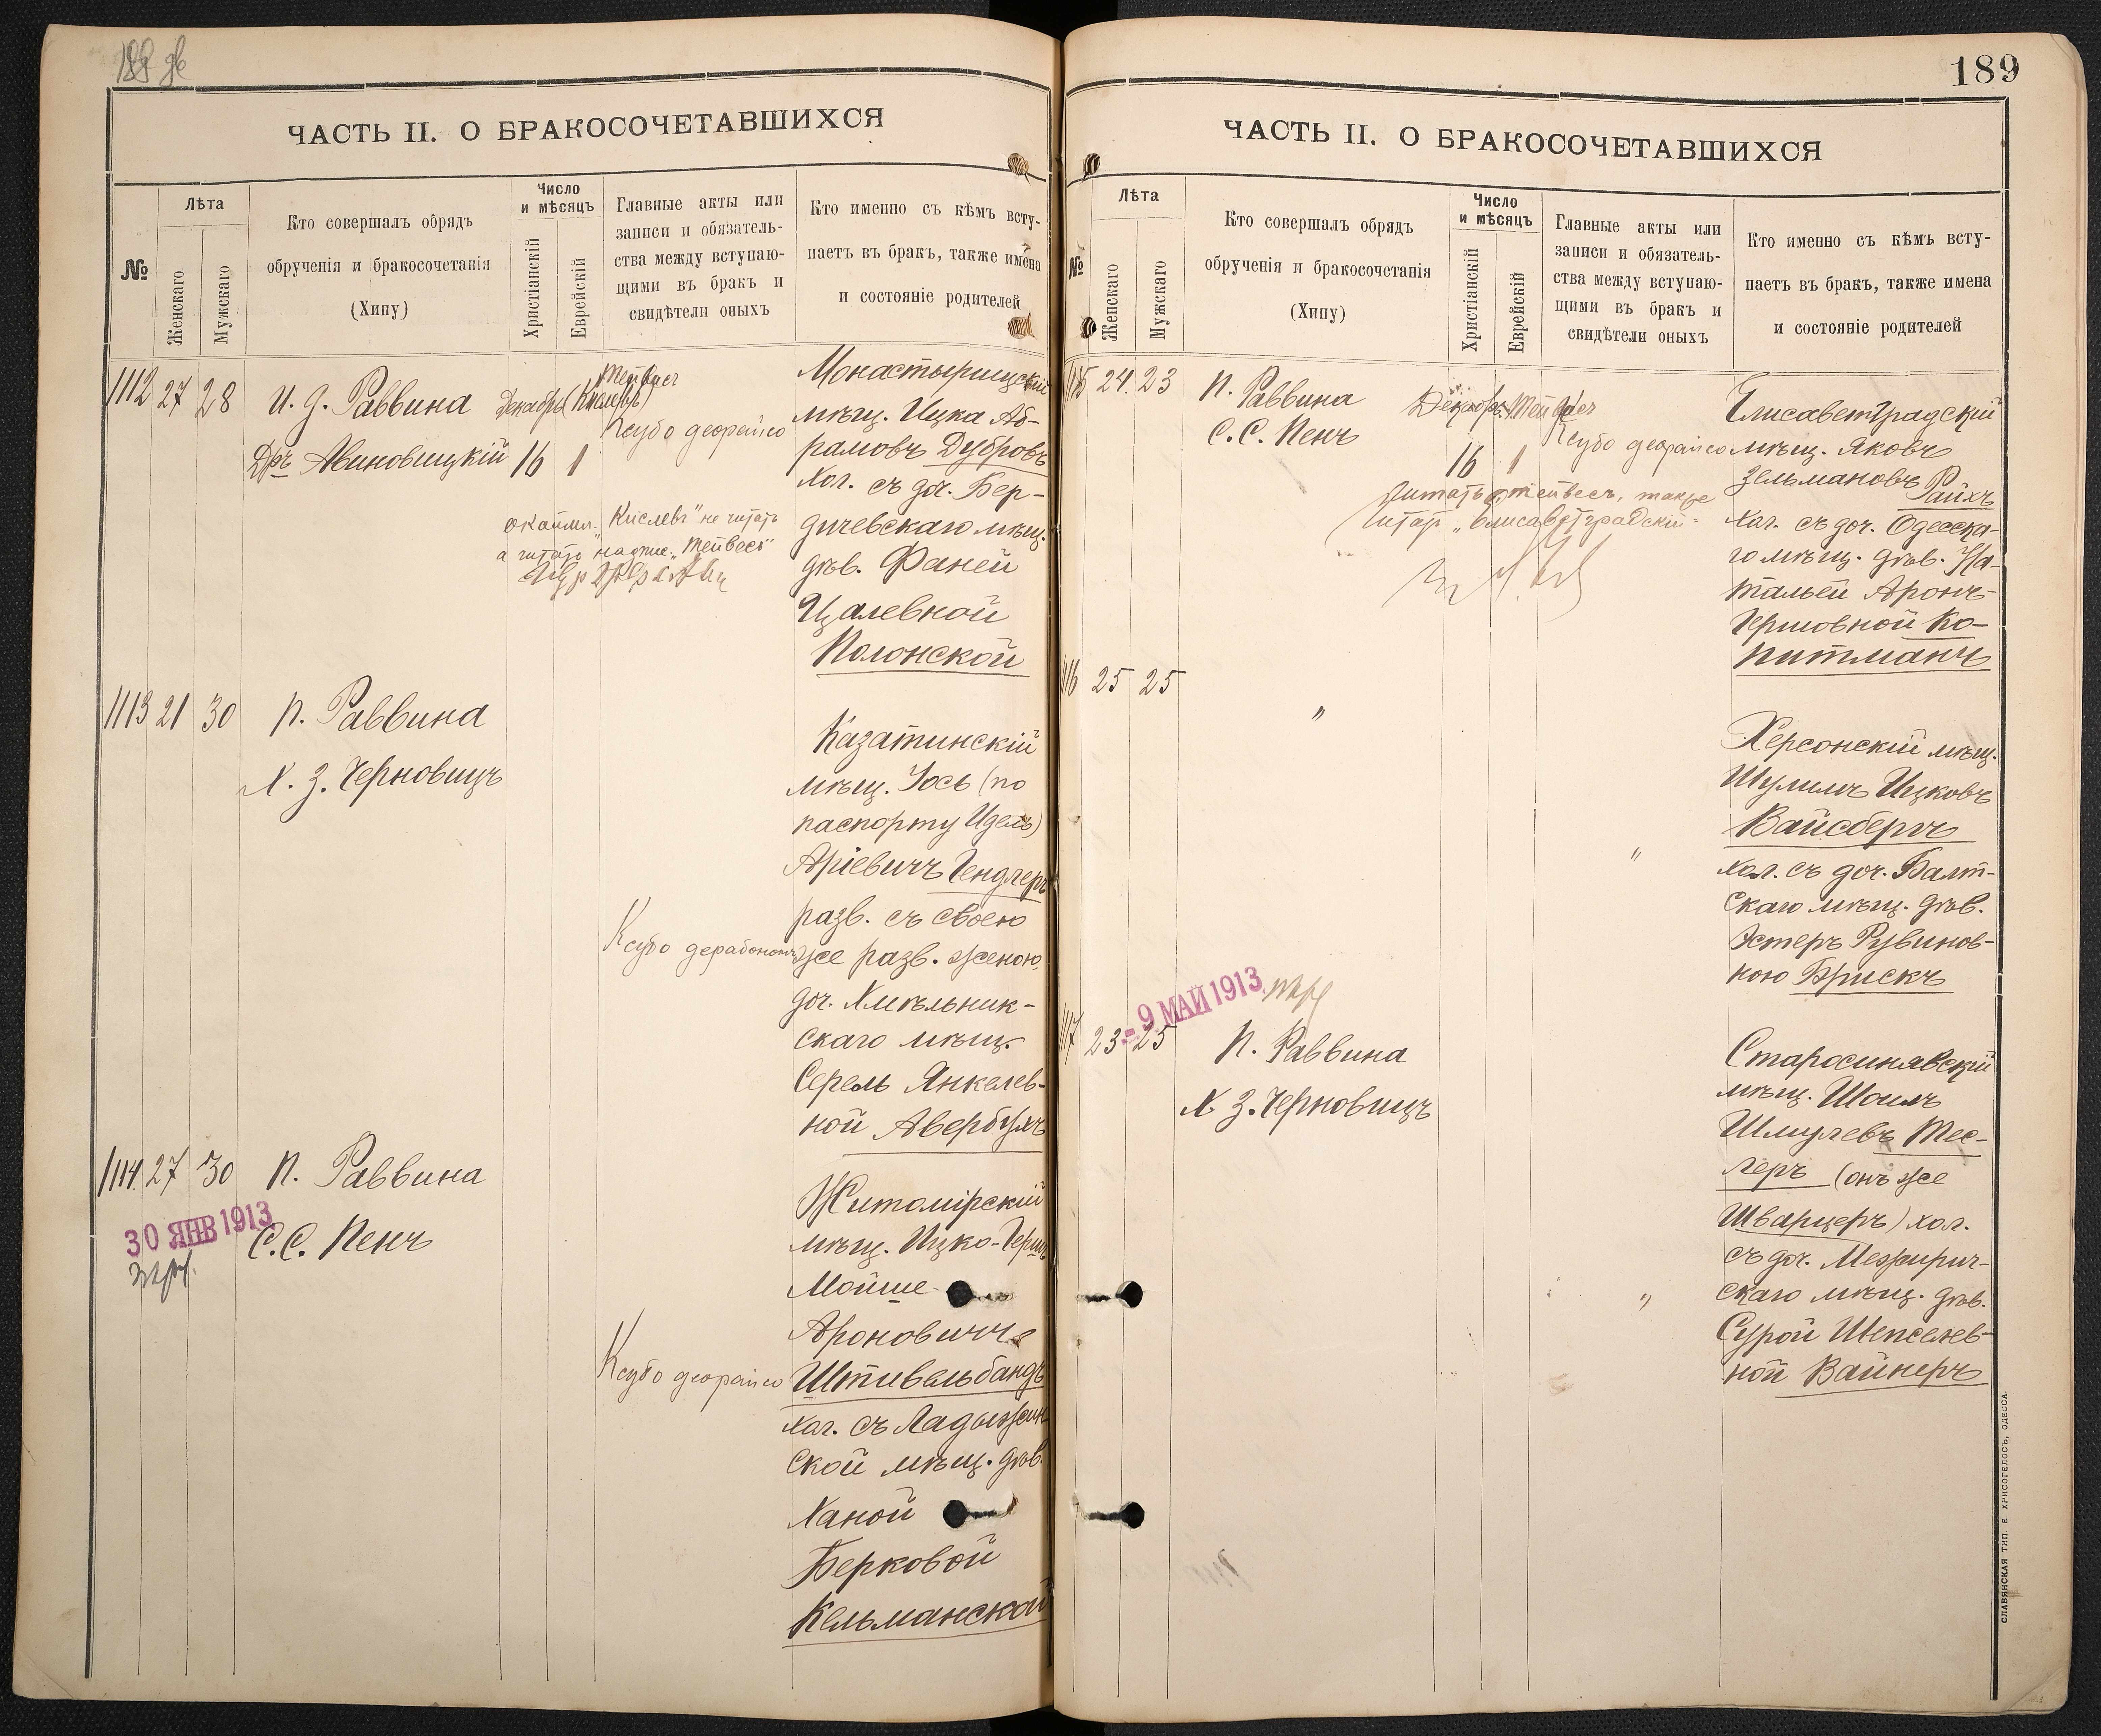 ЧАСТЬ II. О БРАКОСОЧЕТАВШИХСЯ
№
Лѣта
Женскаго
Мужскаго
Кто совершалъ обрядъ
обрученія и бракосочетанія
(Хипу)
Число
и мѣсяцъ
Христіанскій
Еврейскій
Главные акты или
записи и обязатель-
ства между вступаю-
щими въ бракъ и
свидѣтели оныхъ
Кто именно съ кѣмъ всту-
паетъ въ бракъ, также имена
и состояніе родителей
1112 27 28
И. д. Раввина
Дръ Авиновицкій
Декабрь (Кислевъ)
Тейвесъ
16 1
Ксубо деорайсо
"Кислевъ" не читать
а читать надпис. "Тейвесъ"
Монастырищскій
мѣщ. Ицка Аб-
рамовъ Дубровъ
хол. съ доч. Бер-
дичевскаго мѣщ.
дѣв. Фаней
Цалевной
Полонской
1113 21 30
П. Раввина
Х. З. Черновицъ
Ксубо дерабонон
Казатинскій
мѣщ. Іось (по
паспорту Идель)
Аріевичъ Гендлеръ
разв. съ своею
же разв. женою,
доч. Хмѣльник-
скаго мѣщ.
Серель Янкелев-
ной Авербухъ
1114 27 30
П. Раввина
С. С. Пенъ
30 ЯНВ 1913
Ксубо деорайсо
Житомірскій
мѣщ. Ицко-Гершъ
Мойше-
Ароновичъ
Штивельбандъ
хол. съ Ладыжин-
ской мѣщ. дѣв.
Ханой
Берковой
Кельманской
189
ЧАСТЬ II. О БРАКОСОЧЕТАВШИХСЯ
№
Лѣта
Женскаго
Мужскаго
Кто совершалъ обрядъ
обрученія и бракосочетанія
(Хипу)
Число
и мѣсяцъ
Христіанскій
Еврейскій
Главные акты или
записи и обязатель-
ства между вступаю-
щими въ бракъ и
свидѣтели оныхъ
Кто именно съ кѣмъ всту-
паетъ въ бракъ, также имена
и состояніе родителей
1115 24 23
П. Раввина
С. С. Пенъ
Декабрь Тейвесъ
16 1
Ксубо деорайсо
Читать "тейвесъ", также
читать "Елисаветградскій"
Елисаветградскій
мѣщ. Яковъ
Зельмановъ Райхъ
хол. съ доч. Одесска-
го мѣщ. дѣв. На-
тальей Аронъ-
Гершовной Ко-
питманъ
116 25 25
"
"
Херсонскій мѣщ.
Шулимъ Ицковъ
Вайсбергъ
хол. съ доч. Балт-
скаго мѣщ. дѣв.
Эстеръ Рувинов-
ною Брискъ
- 9 МАЙ 1913
117 23 25
П. Раввина
Х. З. Черновицъ
"
Старосинявскій
мѣщ. Шоилъ
Шмулевъ Тес-
леръ (онъ же
Шварцеръ) хол.
съ доч. Межирич-
скаго мѣщ. дѣв.
Сурой Шепселев-
ной Вайнеръ
СЛАВЯНСКАЯ ТИП. Е ХРИСОГЕЛОСЪ, ОДЕССА.